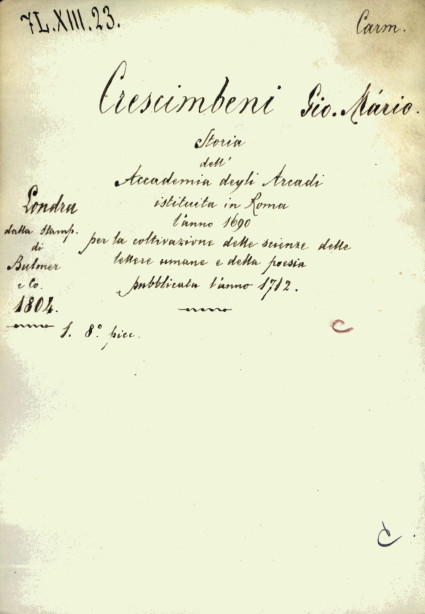 7L.XIII.23.
Carm.
Crescimbeni Gio. Mário.
Storia
dell'
Accademia degli Arcadi
istituita in Roma
l'anno 1690
per la coltivazione delle scienze delle
lettere umane e della poesia
pubblicata l'anno 1712.
Londra
dalla Stamp.
di
Bulmer
e Co.
1804.
1. 8º picc.
C
C